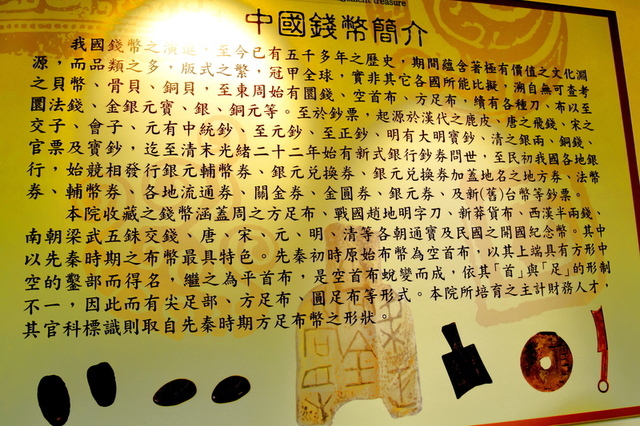 treasure
中國錢幣簡介
我國錢幣之演進，至今已有五千多年之歷史，期間蘊含著極有價值之文化淵
源，而品類之多，版式之繁，冠甲全球，實非其它各國所能比擬，溯自無可查考
之貝幣、骨貝、銅貝，至東周始有圜錢、空首布、方足布，續有各種刀、布以至
圜法錢、金銀元寶、銀、銅元等。至於鈔票，起源於漢代之鹿皮、唐之飛錢、宋之
交子、會子、元有中統鈔、至元鈔、至正鈔、明有大明寶鈔、清之銀兩、銅錢、
官票及寶鈔，迄至清末光緒二十二年始有新式銀行鈔券問世，至民初我國各地銀
行，始競相發行銀元輔幣券、銀元兌換券、銀元兌換券加蓋地名之地方券、法幣
券、輔幣券、各地流通券、關金券、金圓券、銀元券、及新(舊)台幣等鈔票。
本院收藏之錢幣涵蓋周之方足布、戰國趙地明字刀、新莽貨布、西漢半兩錢、
南朝梁武五銖交錢、唐、宋、元、明、清等各朝通寶及民國之開國紀念幣。其中
以先秦時期之布幣最具特色。先秦初時原始布幣為空首布，以其上端具有方形中
空的銎部而得名，繼之為平首布，是空首布蛻變而成，依其「首」與「足」的形制
不一，因此而有尖足部、方足布、圓足布等形式。本院所培育之主計財務人才，
其官科標識則取自先秦時期方足布幣之形狀。